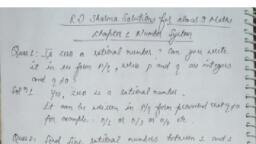 R.D Sharma Solutions for class 9 Maths
Chapter 1 Number System
Ques 1: Is zero a rational number? Can you write
it in the form P/q, where p and q are integers
and q≠0?
Solⁿ: Yes, zero is a rational number.
It can be written in P/q form provided that q≠0
for example: 0/1 or 0/3 or 0/4 etc.
Ques 2: Find five rational numbers between 1 and 2